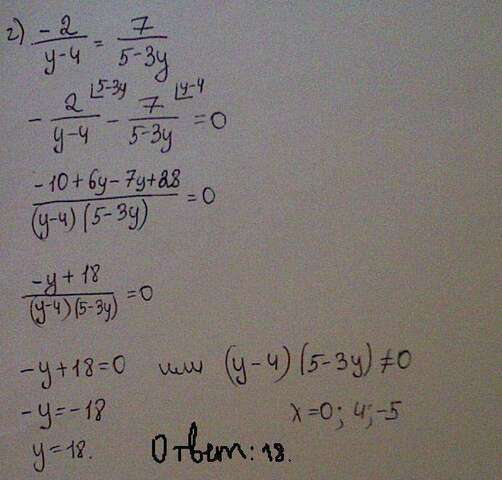 г) -2/(y-4) = 7/(5-3y)
- 2/(y-4) ⌊5-3y - 7/(5-3y) ⌊y-4 = 0
(-10+6y-7y+28)/((y-4)(5-3y)) = 0
(-y+18)/((y-4)(5-3y)) = 0
-y+18=0 или (y-4)(5-3y)≠0
-y=-18 x=0; 4;-5
y=18. Ответ: 18.